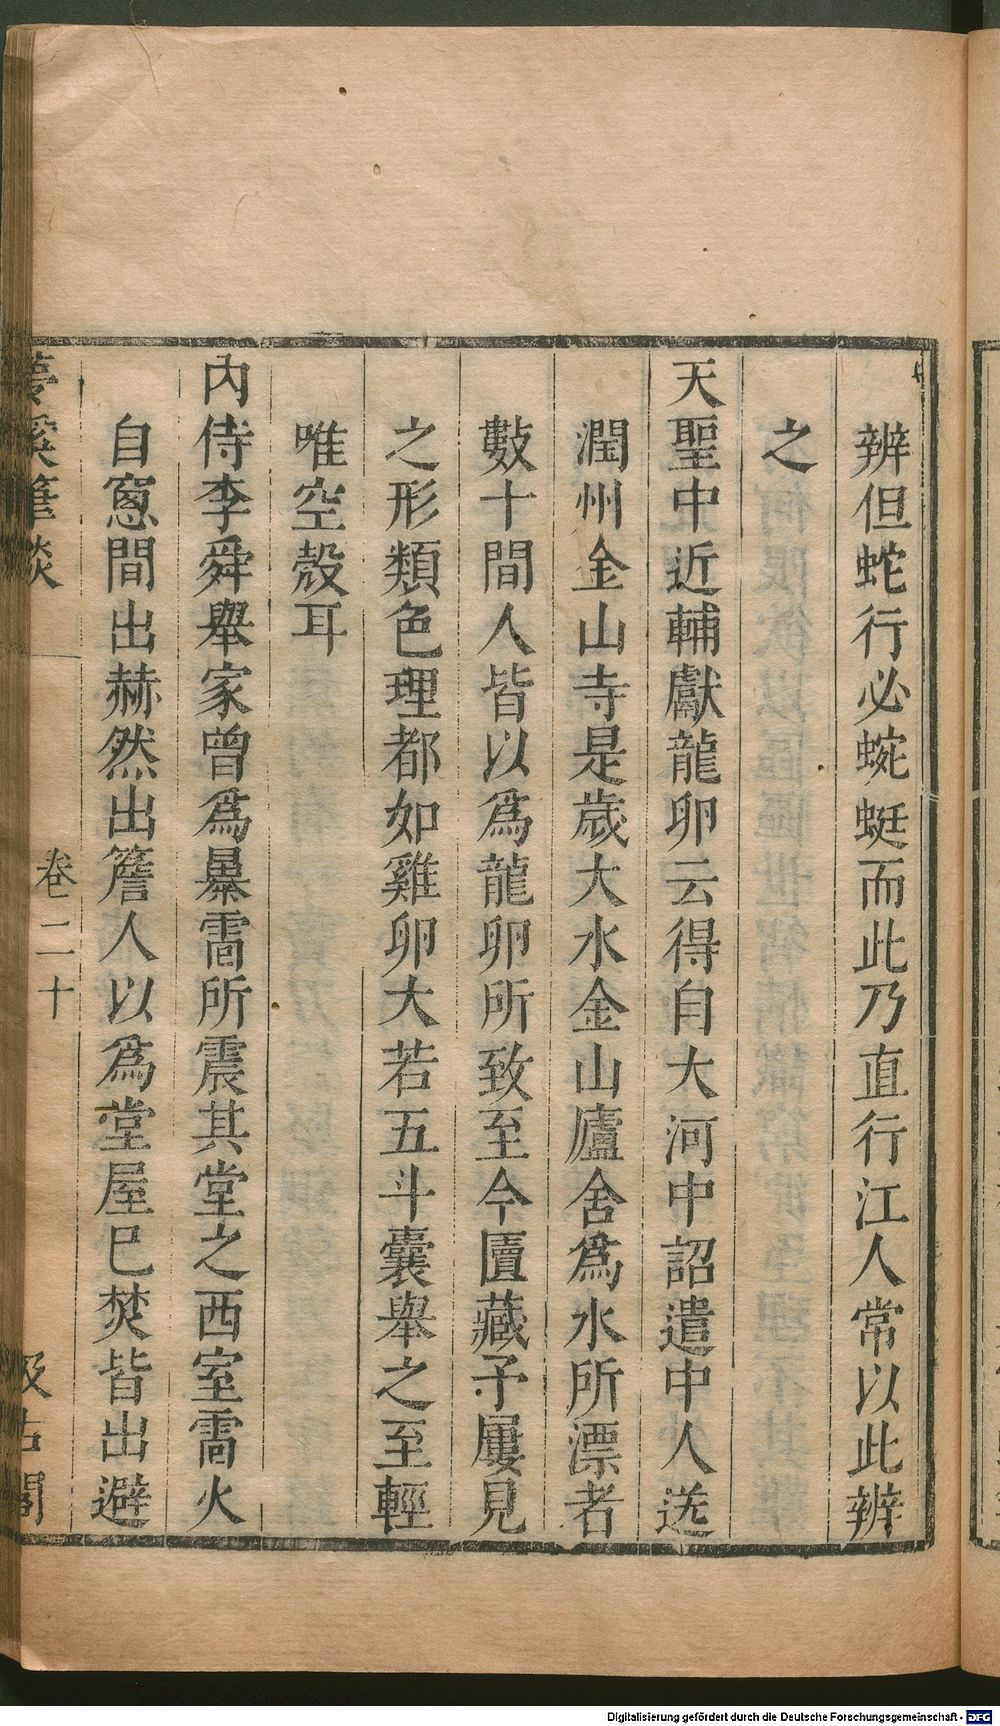 辨但蛇行必蜿蜒而此乃直行江人常以此辨
之
天聖中近輔獻龍卵云得自大河中詔遣中人送
潤州金山寺是歲大水金山廬舍爲水所漂者
數十間人皆以爲龍卵所致至今匱藏予屢見
之形類色理都如雞卵大若五斗囊舉之至輕
唯空殼耳
內侍李舜舉家曾爲暴雷所震其堂之西室雷火
自窻間出赫然出簷人以爲堂屋已焚皆出避
夢溪筆談
卷二十
汲古閣
Digitalisierung gefördert durch die Deutsche Forschungsgemeinschaft - DFG